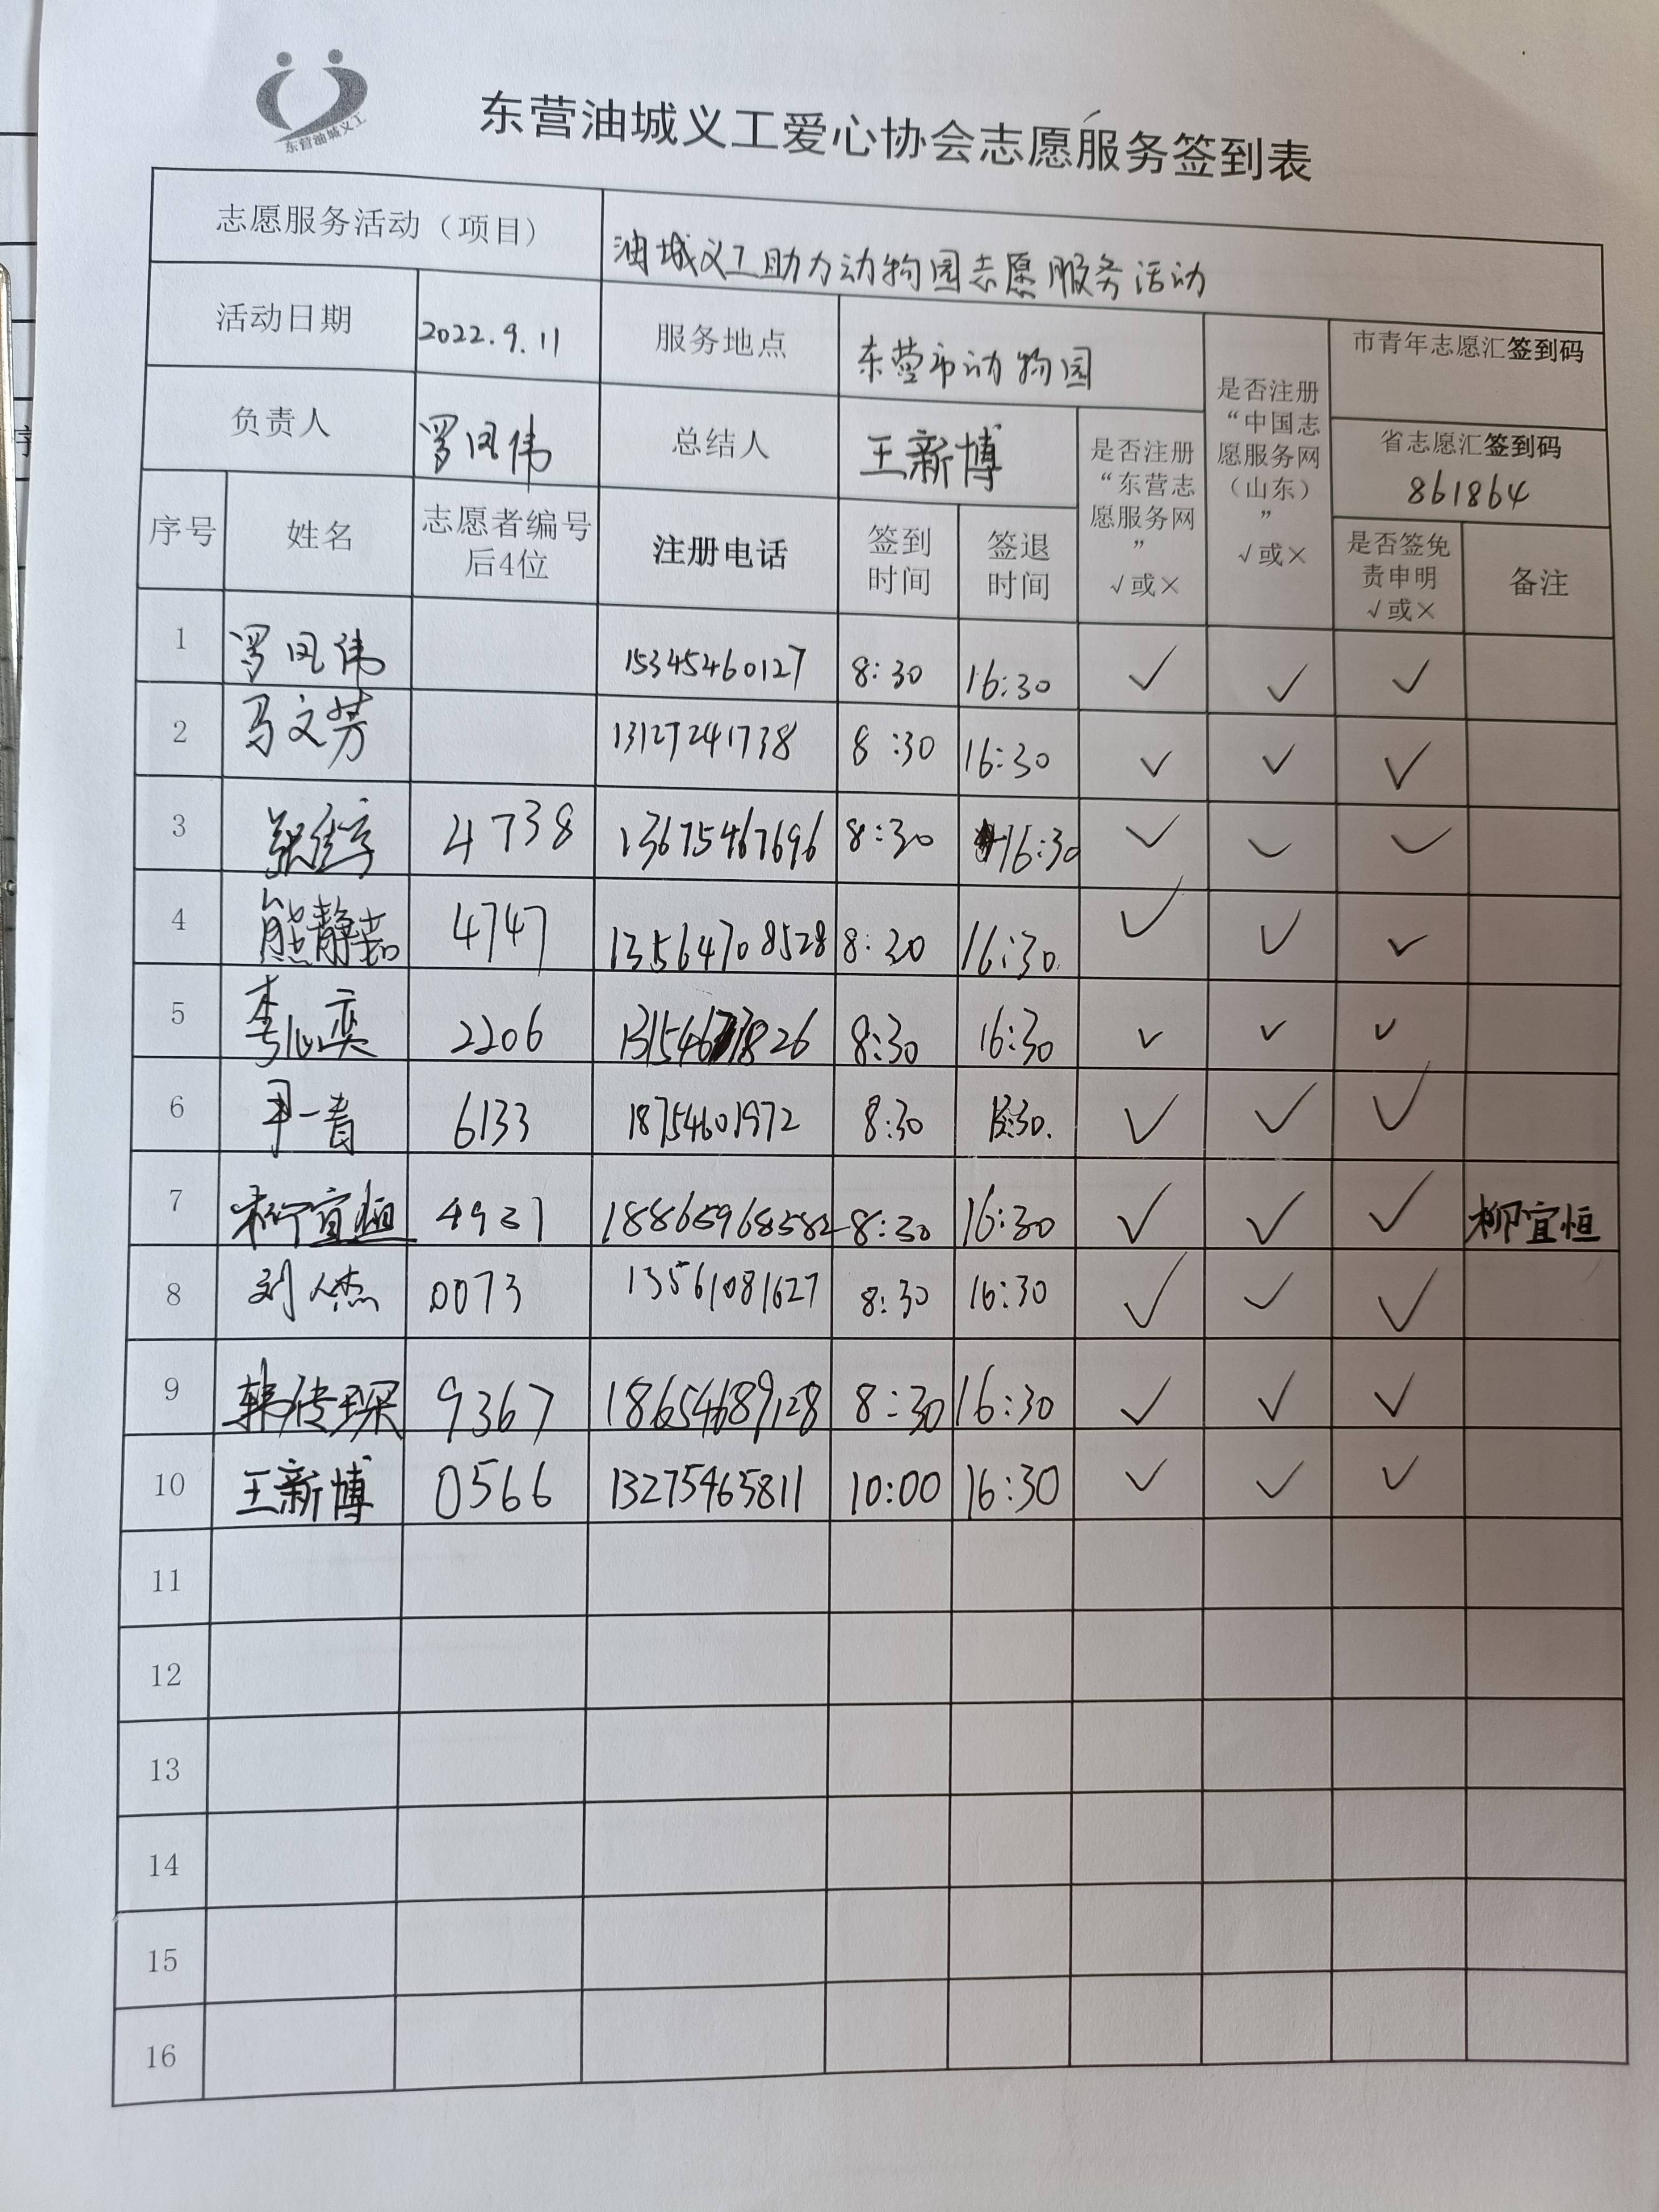 东营油城义工
东营油城义工爱心协会志愿服务签到表
志愿服务活动（项目） 油城义工助力动物园志愿服务活动
活动日期 2022.9.11 服务地点 东营市动物园 是否注册“中国志愿服务网（山东）”√或× 市青年志愿汇签到码
负责人 罗凤伟 总结人 王新博 是否注册“东营志愿服务网”√或× 省志愿汇签到码 861864
序号 姓名 志愿者编号后4位 注册电话 签到时间 签退时间 是否签免责申明√或× 备注
1 罗凤伟 15345460127 8:30 16:30 ✓ ✓ ✓
2 马文芳 13127241738 8:30 16:30 ✓ ✓ ✓
3 4738 13675467696 8:30 16:30 ✓ ✓ ✓
4 熊静茹 4747 13564708528 8:30 16:30 ✓ ✓ ✓
5 李心奕 2206 8:30 16:30 ✓ ✓ ✓
6 6133 18754601972 8:30 ✓ ✓ ✓
7 柳宜恒 4931 18865968582 8:30 16:30 ✓ ✓ ✓ 柳宜恒
8 刘人杰 0073 13561081627 8:30 16:30 ✓ ✓ ✓
9 韩传琛 9367 18654689128 8:30 16:30 ✓ ✓ ✓
10 王新博 0566 13275465811 10:00 16:30 ✓ ✓ ✓
11
12
13
14
15
16